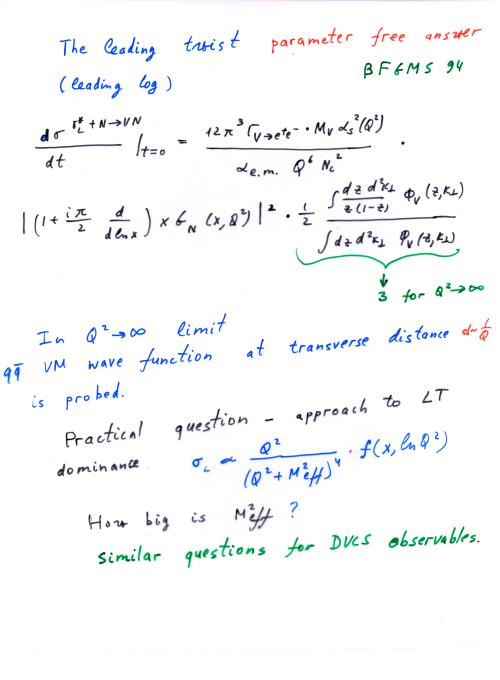 The leading twist parameter free answer
(leading log) BFGMS 94
dσ^{γ*_L + N → VN} / dt |_{t=0} = 12π³ Γ_{V→e⁺e⁻} · M_V α_s²(Q²) / α_{e.m.} Q⁶ N_c² ·
|(1 + iπ/2 d/dlnx) x G_N (x, Q²)|² · 1/2 ∫ dz d²k⊥ / z(1-z) Φ_V (z, k⊥) / ∫ dz d²k⊥ Φ_V (z, k⊥)
↓
3 for Q² → ∞
In Q² → ∞ limit
qq̄ VM wave function at transverse distance d~1/Q
is probed.
Practical question - approach to LT
dominance σ_L ∝ Q² / (Q² + M²_eff)⁴ · f(x, lnQ²)
How big is M²_eff ?
Similar questions for DVCS observables.